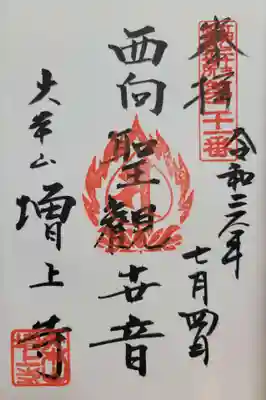 奉拝
西向聖觀世音
令和六年
七月四日
大本山
増上寺